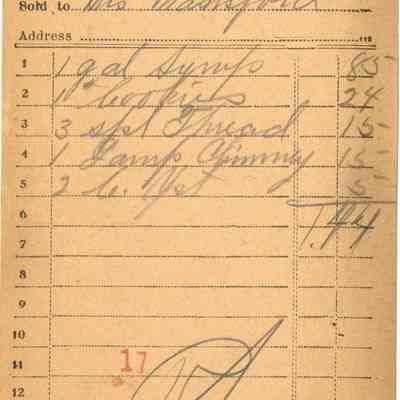 Sold to Mrs
Address
1 1 gal Syrup 85
2 1 Cookies 24
3 3 spl Thread 15
4 1 Lamp Chimney 15
5 2 5
6 1.44
7
8
9
10
11 17
12